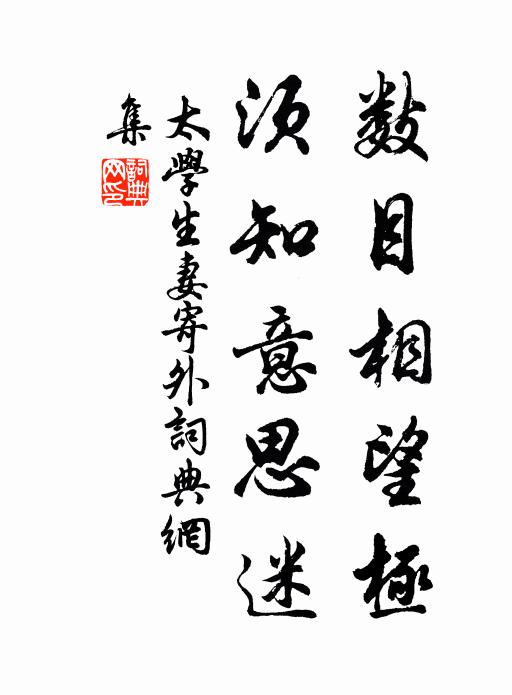 数目相望極
須知意思迷
太學生妻寄外詞典網
集
詞典
网印